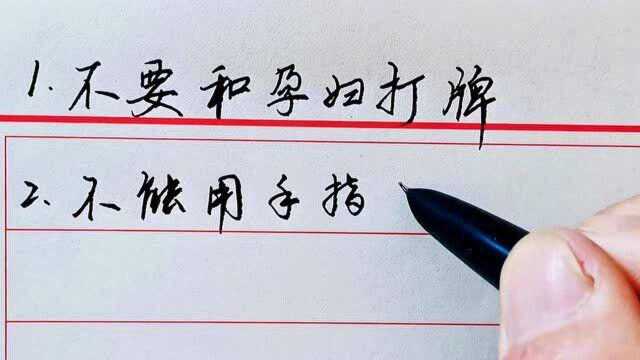 1.不要和孕妇打牌
2.不能用手指